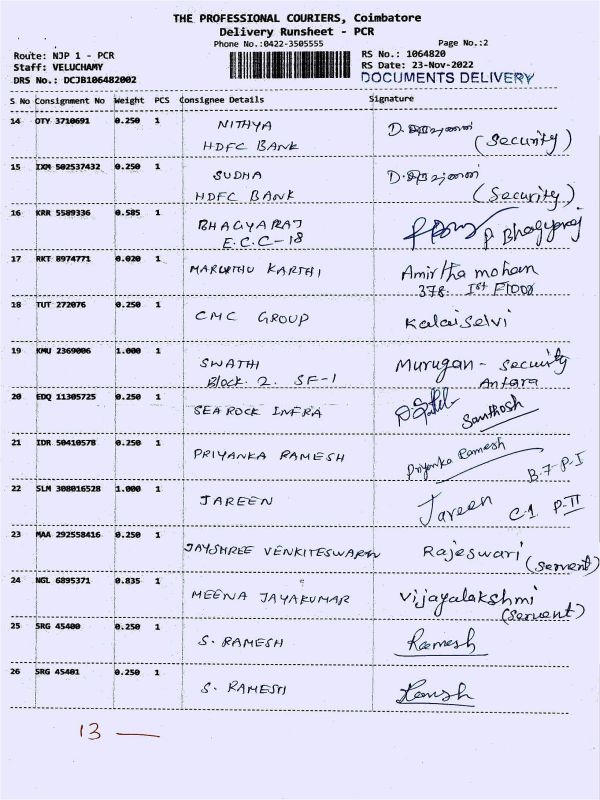 THE PROFESSIONAL COURIERS, Coimbatore
Delivery Runsheet - PCR
Phone No.:0422-3505555 Page No.:2
Route: NJP 1 - PCR RS No.: 1064820
Staff: VELUCHAMY RS Date: 23-Nov-2022
DRS No.: DCJB106482002 DOCUMENTS DELIVERY
S No Consignment No Weight PCS Consignee Details Signature
14 OTY 3710691 0.250 1 NITHYA D.
HDFC BANK (Security)
15 IXM 502537432 0.250 1 SUDHA D.
HDFC BANK (Security)
16 KRR 5589336 0.585 1 BHAGYARAJ P Bhagyaraj
E.C.C-18
17 RKT 8974771 0.020 1 MARUTHU KARTHI Amirtha mohan
378. Ist Floor
18 TUT 272076 0.250 1 CMC GROUP Kalaiselvi
19 KMU 2369006 1.000 1 SWATHI Murugan - Security
Block. 2. SF-1 Antara
20 EDQ 11305725 0.250 1 SEAROCK INFRA Santhosh
21 IDR 50410578 0.250 1 PRIYANKA RAMESH Priyanka Ramesh
B-7-P-I
22 SLM 308016528 1.000 1 JAREEN Jareen C-1 P-II
23 MAA 292558416 0.250 1 JAYSHREE VENKITESWARN Rajeswari
(servent)
24 NGL 6895371 0.835 1 MEENA JAYAKUMAR Vijayalakshmi
(Servent)
25 SRG 45400 0.250 1 S. RAMESH Ramesh
26 SRG 45401 0.250 1 S. RAMESH Ramesh
13 —